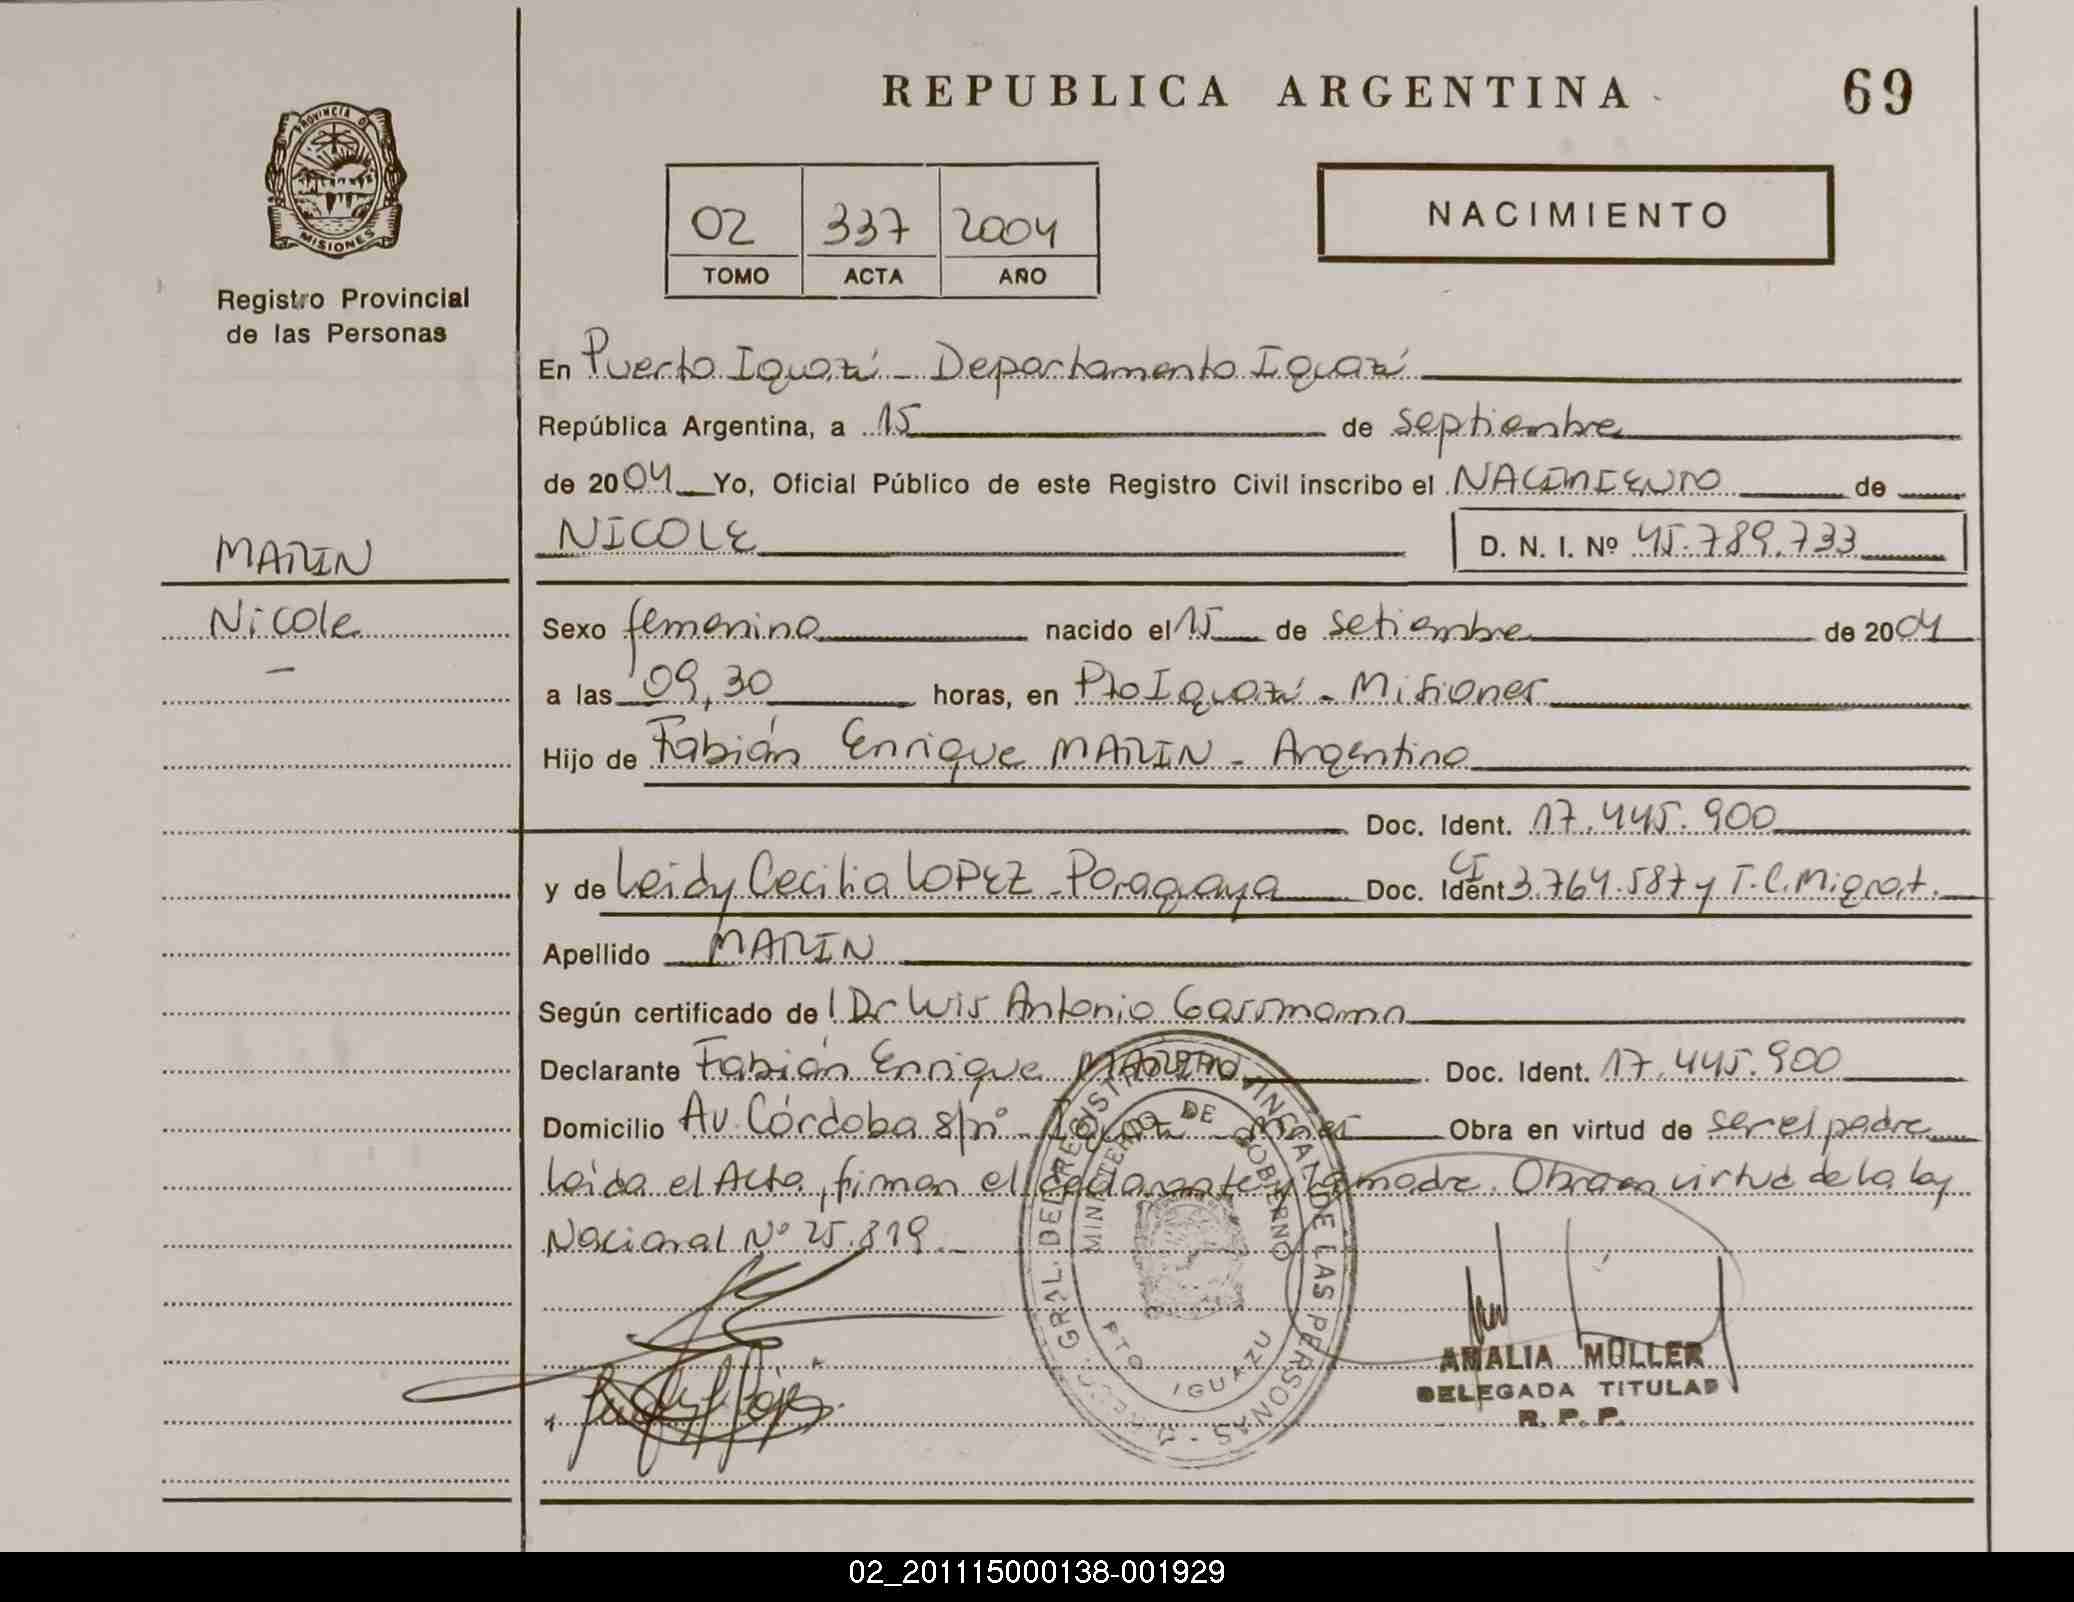 REPUBLICA ARGENTINA
69
PROVINCIA DE
MISIONES
Registro Provincial
de las Personas
02 337 2004
TOMO ACTA AÑO
NACIMIENTO
En Puerto Iguazú - Departamento Iguazú
República Argentina, a 15 de septiembre
de 2004 Yo, Oficial Público de este Registro Civil inscribo el NACIMIENTO de
NICOLE
D. N. I. Nº 45.789.733
MARIN
Nicole
Sexo femenino nacido el 15 de setiembre de 2004
a las 09,30 horas, en Pto Iguazú - Misiones
Hijo de Fabián Enrique MARIN - Argentino
Doc. Ident. 17.445.900
y de Leidy Cecilia LOPEZ - Paraguaya Doc. Ident CI 3.764.587 y T.C. Migrat.
Apellido MARIN
Según certificado de l Dr Luis Antonio
Declarante Fabián Enrique MARIN Doc. Ident. 17.445.900
Domicilio Av. Córdoba s/nº - Obra en virtud de ser el padre
Leida el Acta, firman el declarante y la madre. Obra en virtud de la ley
Nacional Nº 25.819.-
GRAL. DEL REGISTRO PROVINCIAL DE LAS PERSONAS
MINISTERIO DE GOBIERNO
PTO IGUAZU
AMALIA MULLER
DELEGADA TITULAR
R. P. P.
02_201115000138-001929